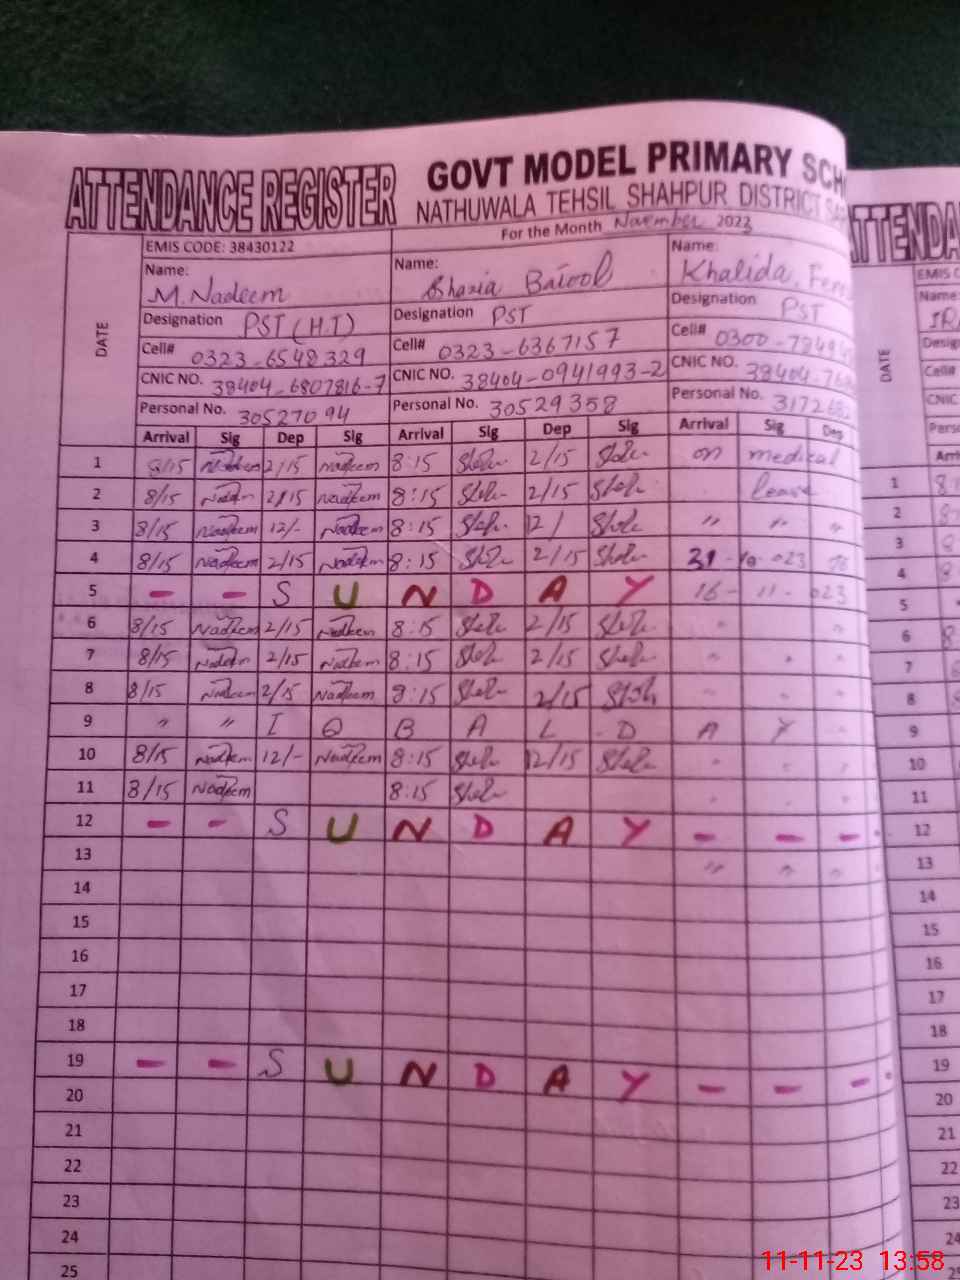 ATTENDANCE REGISTER GOVT MODEL PRIMARY SCH
NATHUWALA TEHSIL SHAHPUR DISTRICT SA
EMIS CODE: 38430122 For the Month November 2023
DATE
Name: M. Nadeem Name: Shazia Batool Name: Khalida
Designation PST (H.T) Designation PST Designation PST
Cell# 0323-6548329 Cell# 0323-6367157 Cell# 0300-
CNIC NO. 38404-6807816-7 CNIC NO. 38404-0941993-2 CNIC NO. 38404-
Personal No. 30527094 Personal No. 30529358 Personal No.
Arrival Sig Dep Sig Arrival Sig Dep Sig Arrival Sig Dep
1 8/15 Nadeem 2/15 Nadeem 8:15 2/15 on medical
2 8/15 Nadeem 2/15 Nadeem 8:15 2/15 leave
3 8/15 Nadeem 12/- Nadeem 8:15 12/ " " "
4 8/15 Nadeem 2/15 Nadeem 8:15 2/15 31-10-023
5 - - S U N D A Y 16-11-023
6 8/15 Nadeem 2/15 Nadeem 8:15 2/15
7 8/15 Nadeem 2/15 Nadeem 8:15 2/15
8 8/15 Nadeem 2/15 Nadeem 8:15 2/15
9 " " I Q B A L D A Y
10 8/15 Nadeem 12/- Nadeem 8:15 12/15
11 8/15 Nadeem 8:15
12 - - S U N D A Y - - -
13 " " "
14
15
16
17
18
19 - - S U N D A Y - - -
20
21
22
23
24
25
ATTENDA
EMIS C
Name
DATE
Desig
Cell#
CNIC
Pers
Arri
1
2
3
4
5
6
7
8
9
10
11
12
13
14
15
16
17
18
19
20
21
22
23
24
11-11-23 13:58